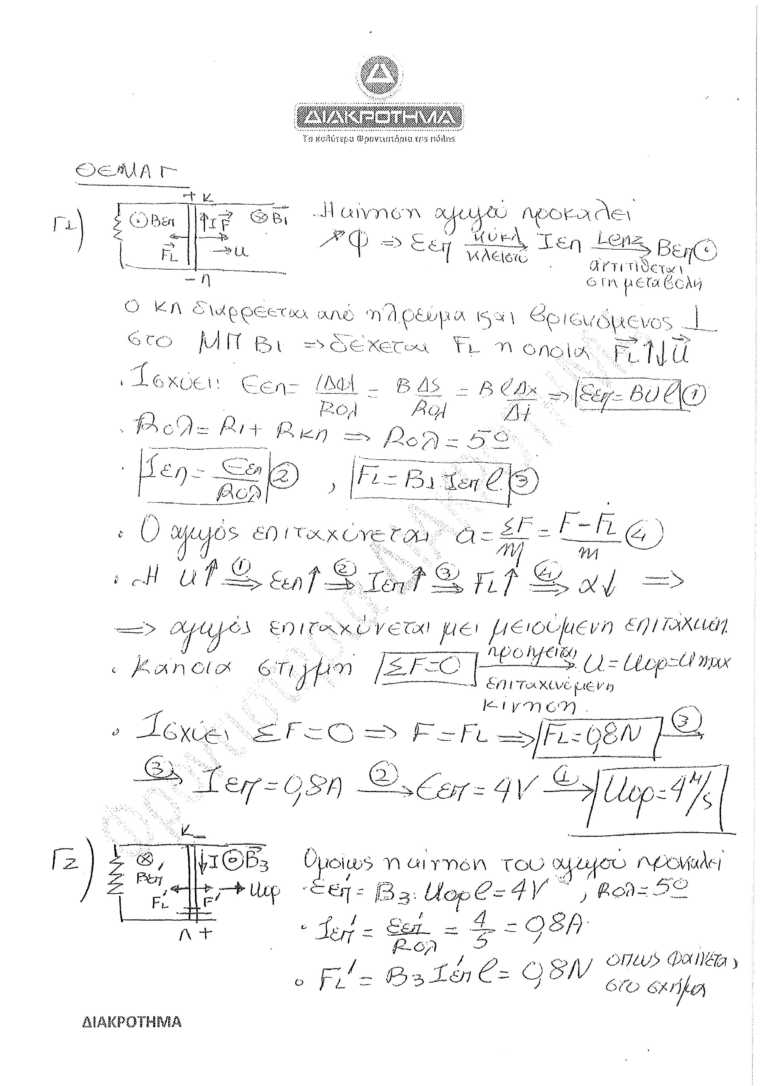 ΔΙΑΚΡΟΤΗΜΑ
Τα καλύτερα Φροντιστήρια της πόλης
ΘΕΜΑ Γ
Γ1)
+ K
⊙Bεπ ↑I F→ ⊗B→1
F→L →u
- Λ
Η κίνηση αγωγού προκαλεί
↗Φ => Εεπ κύκλ κλειστό → Iεπ Lenz → Bεπ⊙
αντιτίθεται
στη μεταβολή
Ο ΚΛ διαρρέεται από ηλ ρεύμα και βρισκόμενος ⊥
στο ΜΠ B1 => δέχεται FL η οποία F→L↑↓u→
. Ισχύει: Εεπ = |ΔΦ|/Rολ = BΔS/Rολ = BℓΔx/Δt => Εεπ = BUℓ ①
. Rολ = R1 + RΚΛ => Rολ = 5Ω
. Iεπ = Εεπ/Rολ ② , FL = B1 Iεπ ℓ ③
. Ο αγωγός επιταχύνεται a = ΣF/m = F-FL/m ④
. Η u↑ ①=> Εεπ↑ ②=> Iεπ↑ ③=> FL↑ ④=> α↓ =>
=> αγωγός επιταχύνεται μει μειούμενη επιτάχυνση.
. Κάποια στιγμή ΣF=0 προηγείται επιταχυνόμενη κίνηση → u=uορ=umax
. Ισχύει ΣF=0 => F=FL => FL=0,8N ③→
③→ Iεπ=0,8A ②→ Εεπ=4V ①→ uορ=4m/s
Γ2)
K -
⊗ Bεπ' ↓I ⊙B→3
FL' F' → uορ
Λ +
Ομοίως η κίνηση του αγωγού προκαλεί
. Εεπ' = B3·uορ ℓ = 4V , Rολ=5Ω
. Iεπ' = Εεπ'/Rολ = 4/5 = 0,8A.
. FL' = B3 Iεπ' ℓ = 0,8N όπως φαίνεται
στο σχήμα
ΔΙΑΚΡΟΤΗΜΑ
Φροντιστήρια ΔΙΑΚΡΟΤΗΜΑ